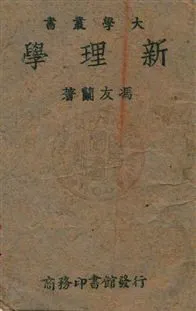 大學叢書
新理學
馮友蘭著
商務印書館發行